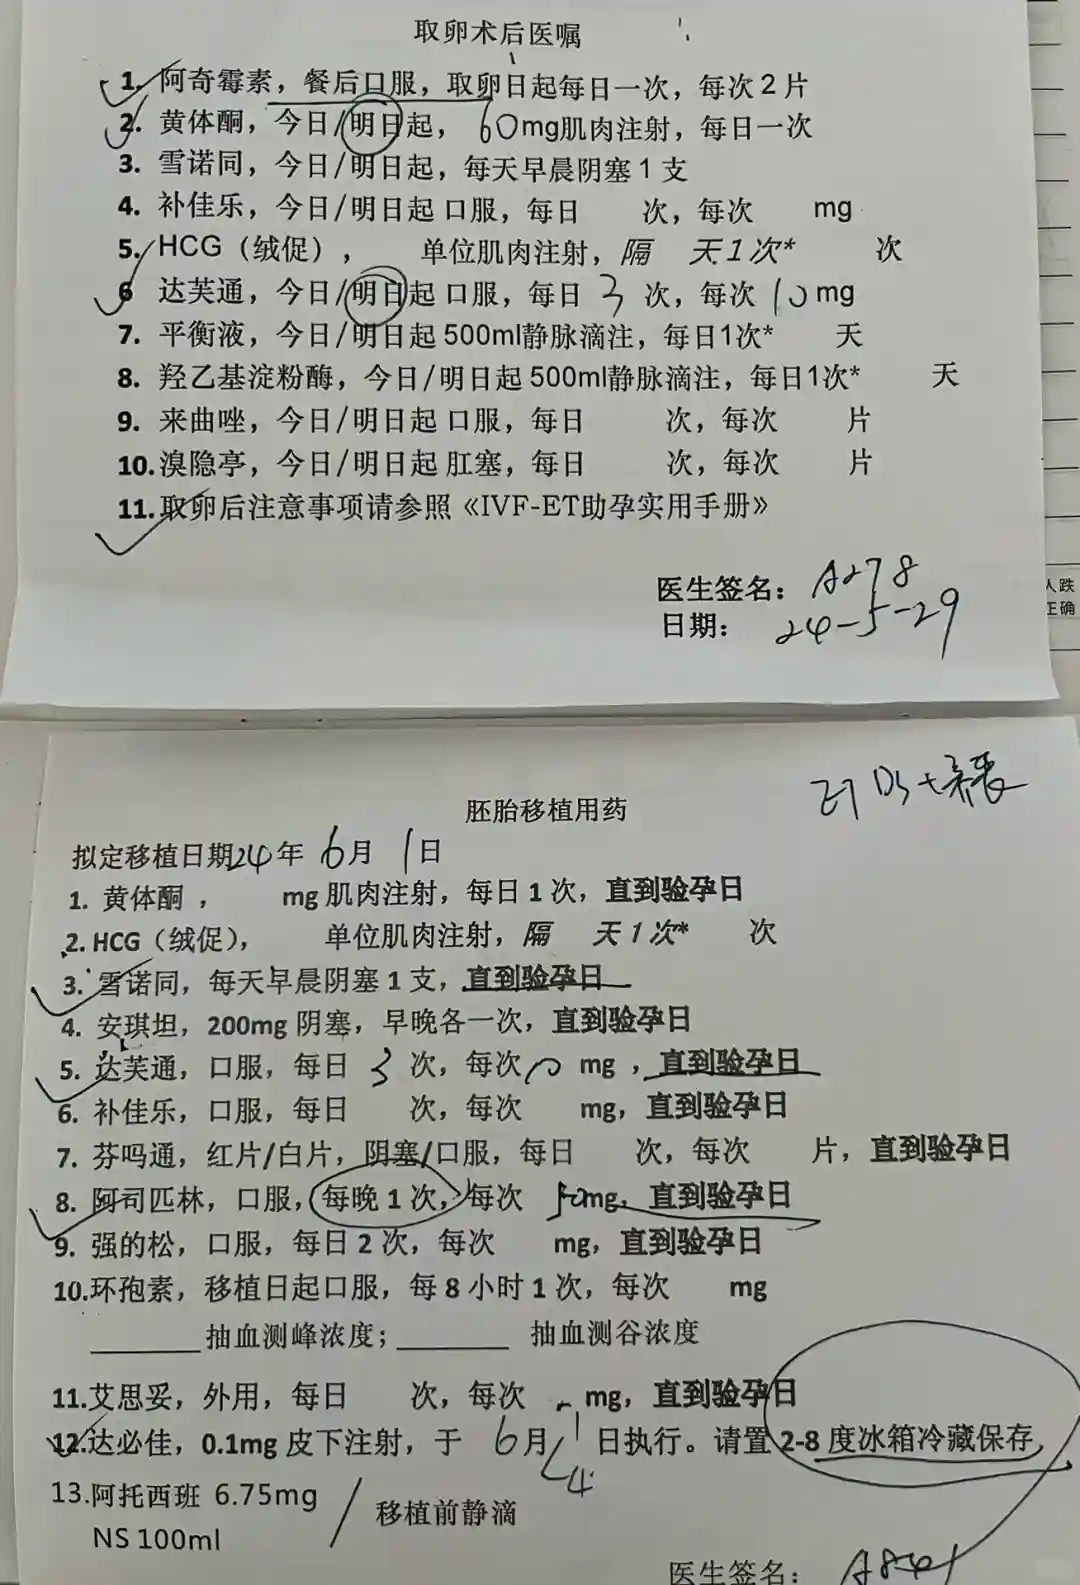 取卵术后医嘱
1. 阿奇霉素，餐后口服，取卵日起每日一次，每次2片
2. 黄体酮，今日/明日起，60mg肌肉注射，每日一次
3. 雪诺同，今日/明日起，每天早晨阴塞1支
4. 补佳乐，今日/明日起 口服，每日 次，每次 mg
5. HCG（绒促）， 单位肌肉注射，隔 天1次* 次
6 达芙通，今日/明日起 口服，每日 3 次，每次 10 mg
7. 平衡液，今日/明日起 500ml静脉滴注，每日1次* 天
8. 羟乙基淀粉酶，今日/明日起 500ml静脉滴注，每日1次* 天
9. 来曲唑，今日/明日起 口服，每日 次，每次 片
10. 溴隐亭，今日/明日起 肛塞，每日 次，每次 片
11. 取卵后注意事项请参照《IVF-ET助孕实用手册》
医生签名：A278
日期： 24-5-29
人跌
正确
胚胎移植用药
拟定移植日期24年 6月 1日
1. 黄体酮 ， mg 肌肉注射，每日 1 次，直到验孕日
2. HCG（绒促）， 单位肌肉注射，隔 天1次* 次
3. 雪诺同，每天早晨阴塞 1 支，直到验孕日
4. 安琪坦，200mg 阴塞，早晚各一次，直到验孕日
5. 达芙通，口服，每日 3 次，每次10 mg ，直到验孕日
6. 补佳乐，口服，每日 次，每次 mg，直到验孕日
7. 芬吗通，红片/白片，阴塞/口服，每日 次，每次 片，直到验孕日
8. 阿司匹林，口服，每晚 1 次，每次 50mg，直到验孕日
9. 强的松，口服，每日 2 次，每次 mg，直到验孕日
10.环孢素，移植日起口服，每 8 小时 1 次，每次 mg
抽血测峰浓度； 抽血测谷浓度
11.艾思妥，外用，每日 次，每次 mg，直到验孕日
12.达必佳，0.1mg 皮下注射，于 6月 1 日执行。请置 2-8 度冰箱冷藏保存，
4
13.阿托西班 6.75mg / 移植前静滴
NS 100ml
医生签名： A841